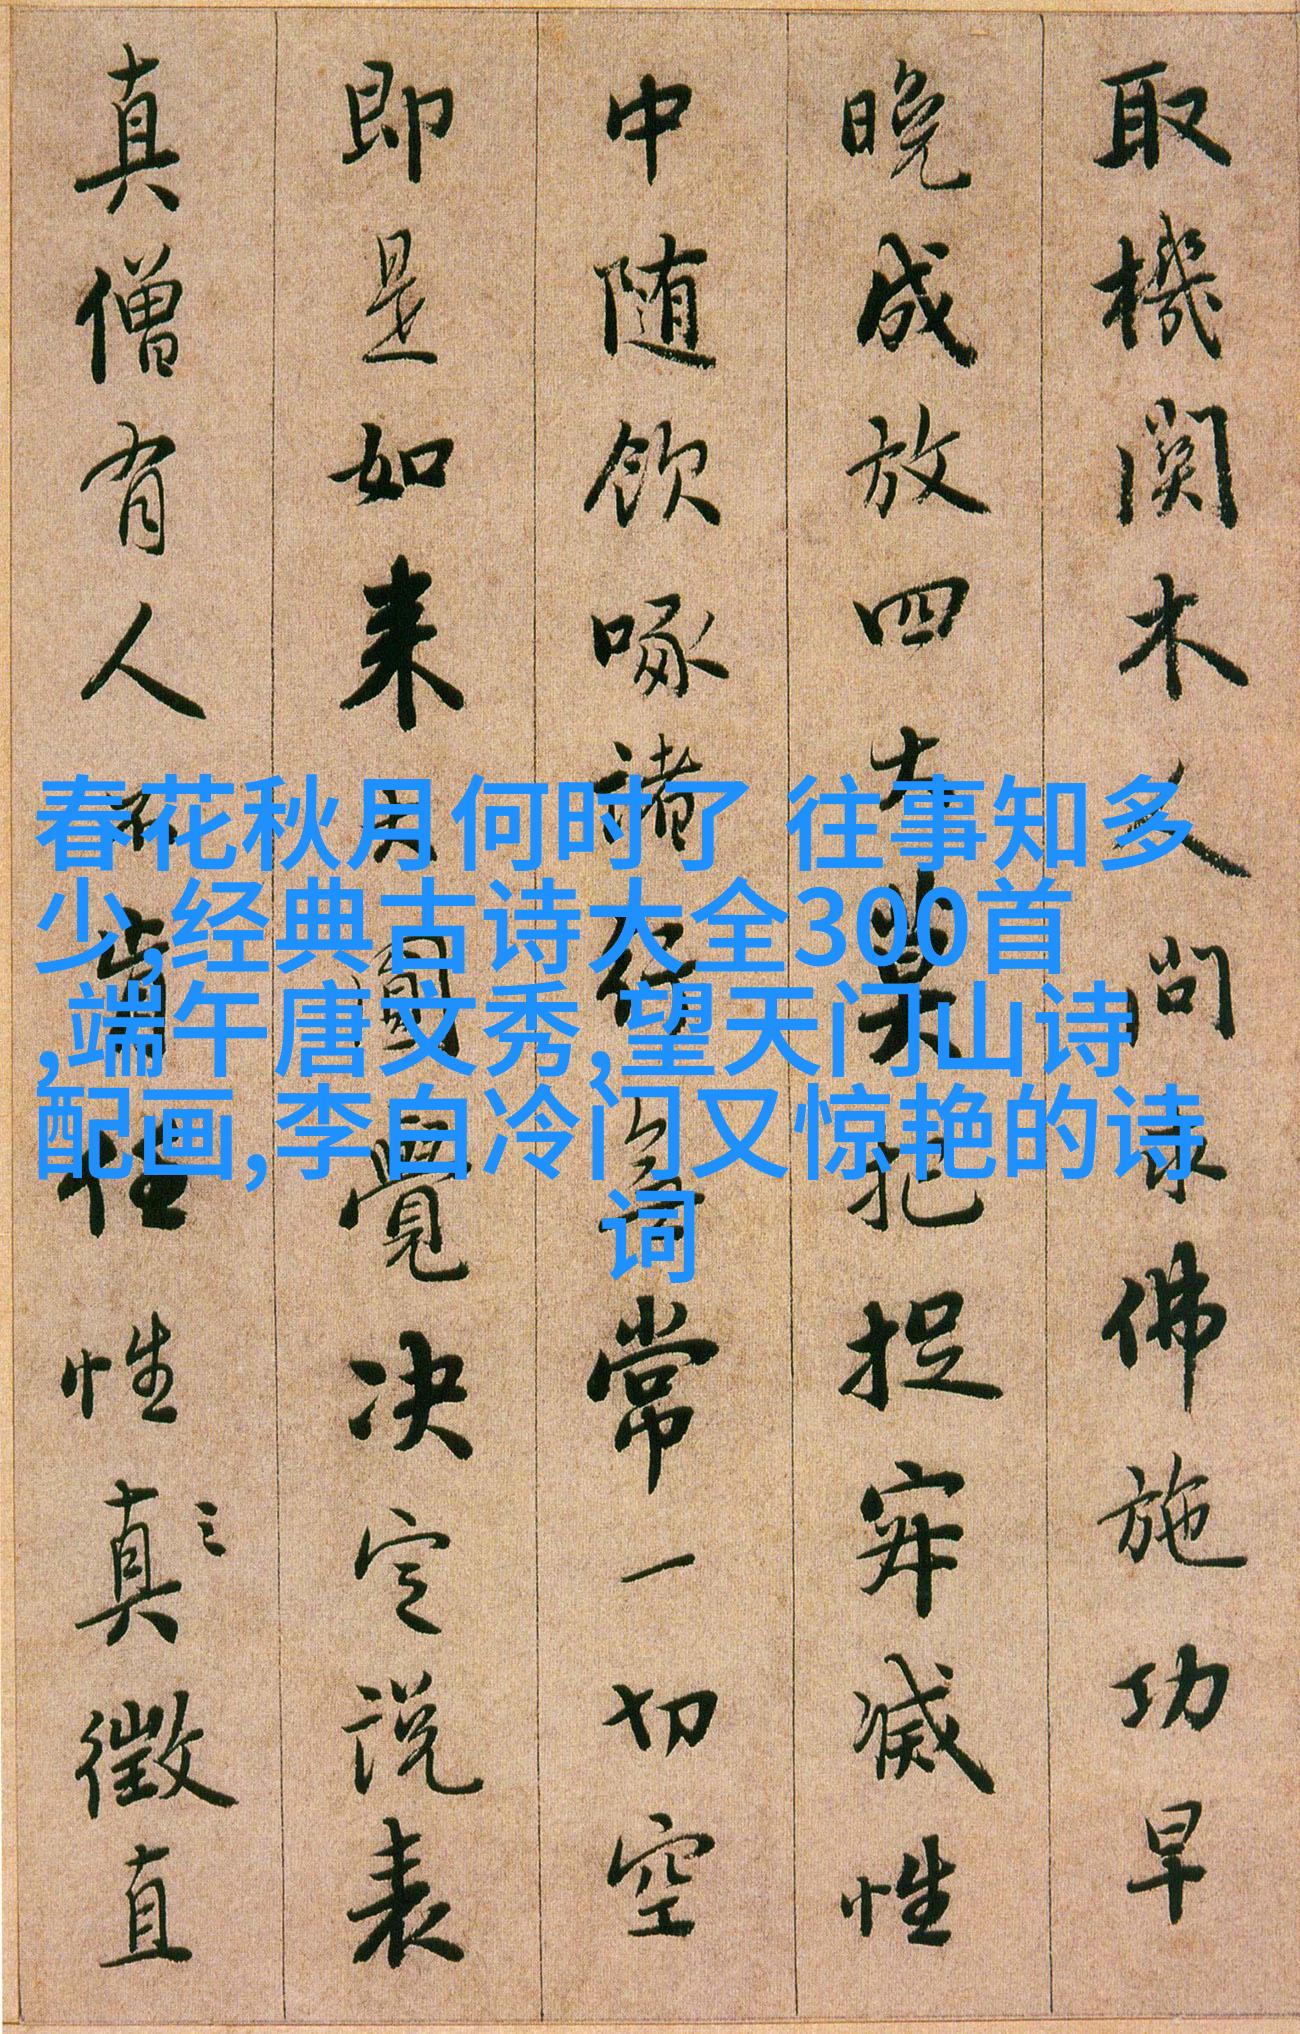 春花秋月何时了 往事知多
少,经典古诗大全300首
,端午唐文秀,望天门山诗
配画,李白冷门又惊艳的诗
词
取機関木人問求佛施功早
晚成放四大莫把捉寂滅性
中随飲啄諸行無常一切空
即是如来大圓覺决定说表
真僧有人不肯任性真徵直